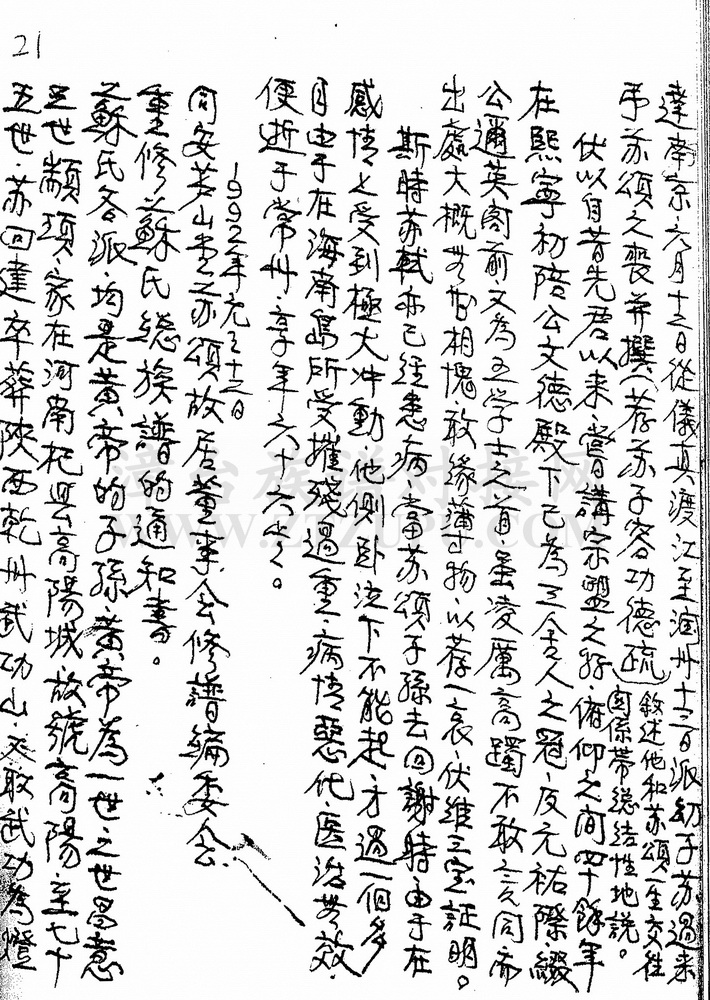 21
達南京、六月十二日從儀真渡江至潤州十三日派幼子苏過来
弔苏頌之喪并撰《荐苏子容功德疏》敘述他和苏頌一生交往
関係帶總结性地說。
伏以自昔先君以来、嘗講宗盟之好、俯仰之间四十餘年
在熙寧初陪公文德殿下已為三舍人之冠、及元祐際綴
公邇英阁前、又為五学士之首虽凌厲高躅不敢言同而
出處大概無甚相愧、敢緣薄物以荐一哀、伏維三宝証明。
斯時苏軾亦已经患病、當苏頌子孫去回謝時由于在
感情上受到極大冲動、他側卧泣下不能起、才過一個多
月由于在海南島所受摧殘過重、病情惡化、医治無效、
便逝于常州、享年六十六岁。
一九九二年元月十二日
同安芦山堂苏頌故居董事会修譜编委会
重修蘇氏總族譜的通知書。
之蘇氏各派、均是黄帝的子孫、黄帝為一世之世昌意
三世顓頊、家在河南杞县高陽城、故號高陽、至七十
五世、苏回建卒葬陝西乾州武功山、文敢武功為燈
漳台族谱对接网
WWW.ZTZUPU.COM